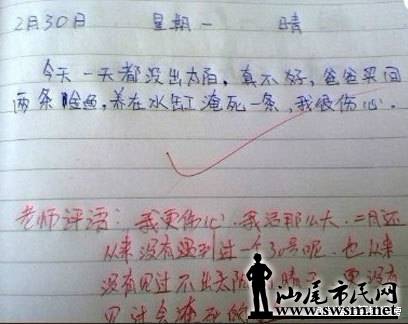 2月30日 星期一 晴
今天一天都没出太阳，真不好，爸爸买回
两条鱼，养在水缸淹死一条，我很伤心。
老师评语：我更伤心，我活那么大，二月还
从来没有遇到过一个30号呢，也从来
没有见过不出太阳的晴天，更没有
见过会淹死的
汕尾市民网
www.swsm.net